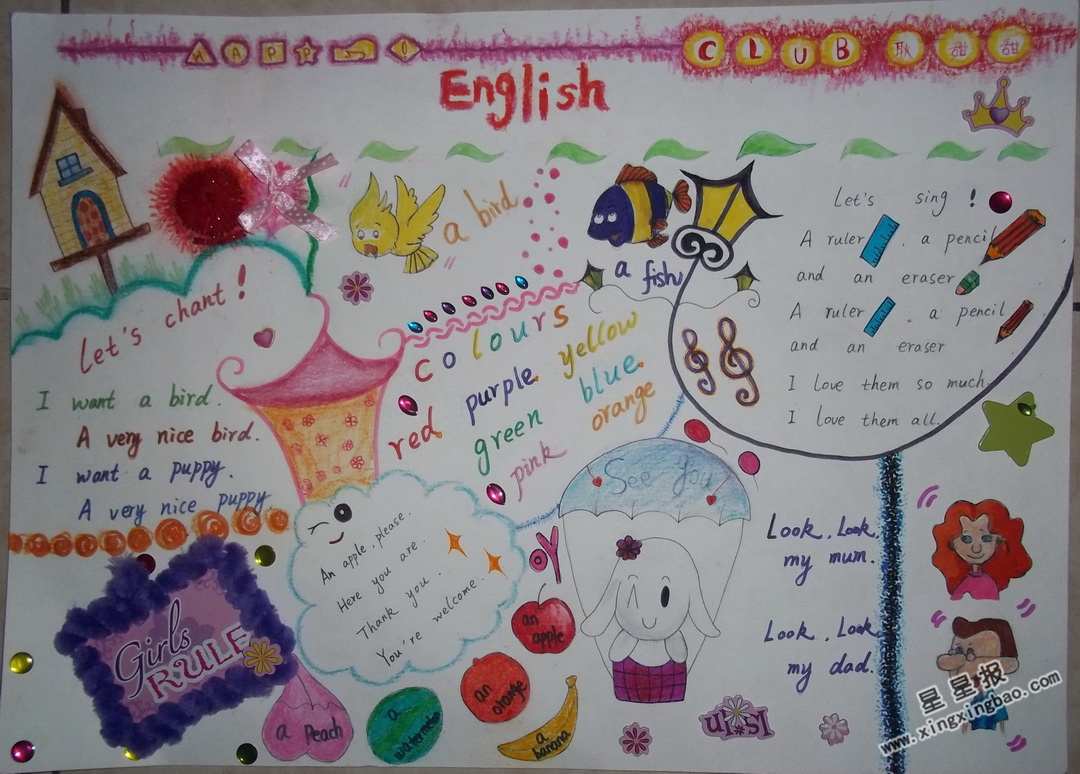 HAPPY
CLUB 耿甜甜
English
a bird
a fish
Let's sing !
A ruler , a pencil
and an eraser
A ruler , a pencil
and an eraser
I love them so much.
I love them all.
Let's chant !
I want a bird.
A very nice bird.
I want a puppy.
A very nice puppy
colours
red purple yellow
green blue
pink orange
An apple, please.
Here you are.
Thank you.
You're welcome.
See you
Look, Look,
my mum.
Look, Look
my dad.
Girls
RULE
a Peach
a watermelon
an orange
an apple
a banana
星星报
www.xingxingbao.com